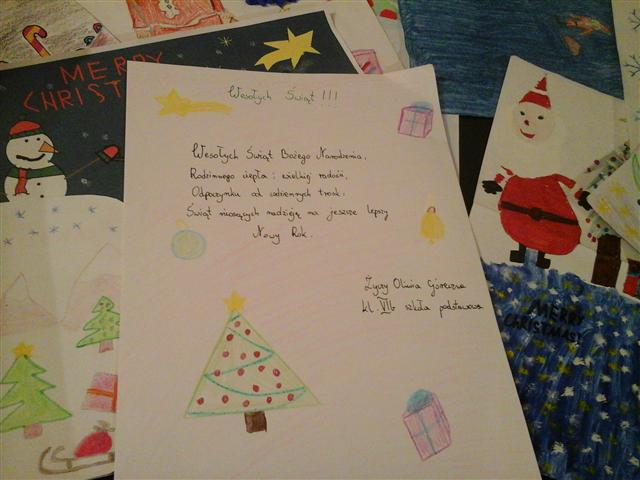 MERRY
CHRISTM
Wesołych Świąt !!!
Wesołych Świąt Bożego Narodzenia,
Rodzinnego ciepła i wielkiej radości,
Odpoczynku od codziennych trosk.
Świąt niosących nadzieję na jeszcze lepszy
Nowy Rok.
Życzy Oliwia
kl. VIb szkoła podstawowa
MERRY
CHRISTMAS!